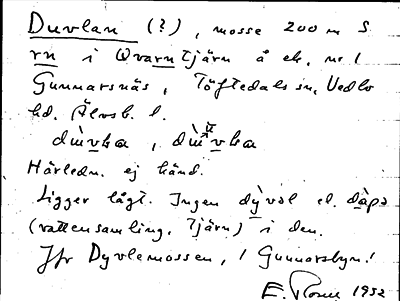 Duvlan (?), mosse 200 m S
rn i Qvarntjärn å ek. nr 1
Gunnarsnäs, Töftedals sn, Vedbo
hd. Älvsb. l.
Härledn. ej känd.
Ligger lågt. Ingen dyvel el. dåpa
(vattensamling, tjärn) i den.
Jfr Dyvlemossen, 1 Gunnarsbyn!
E. 1952